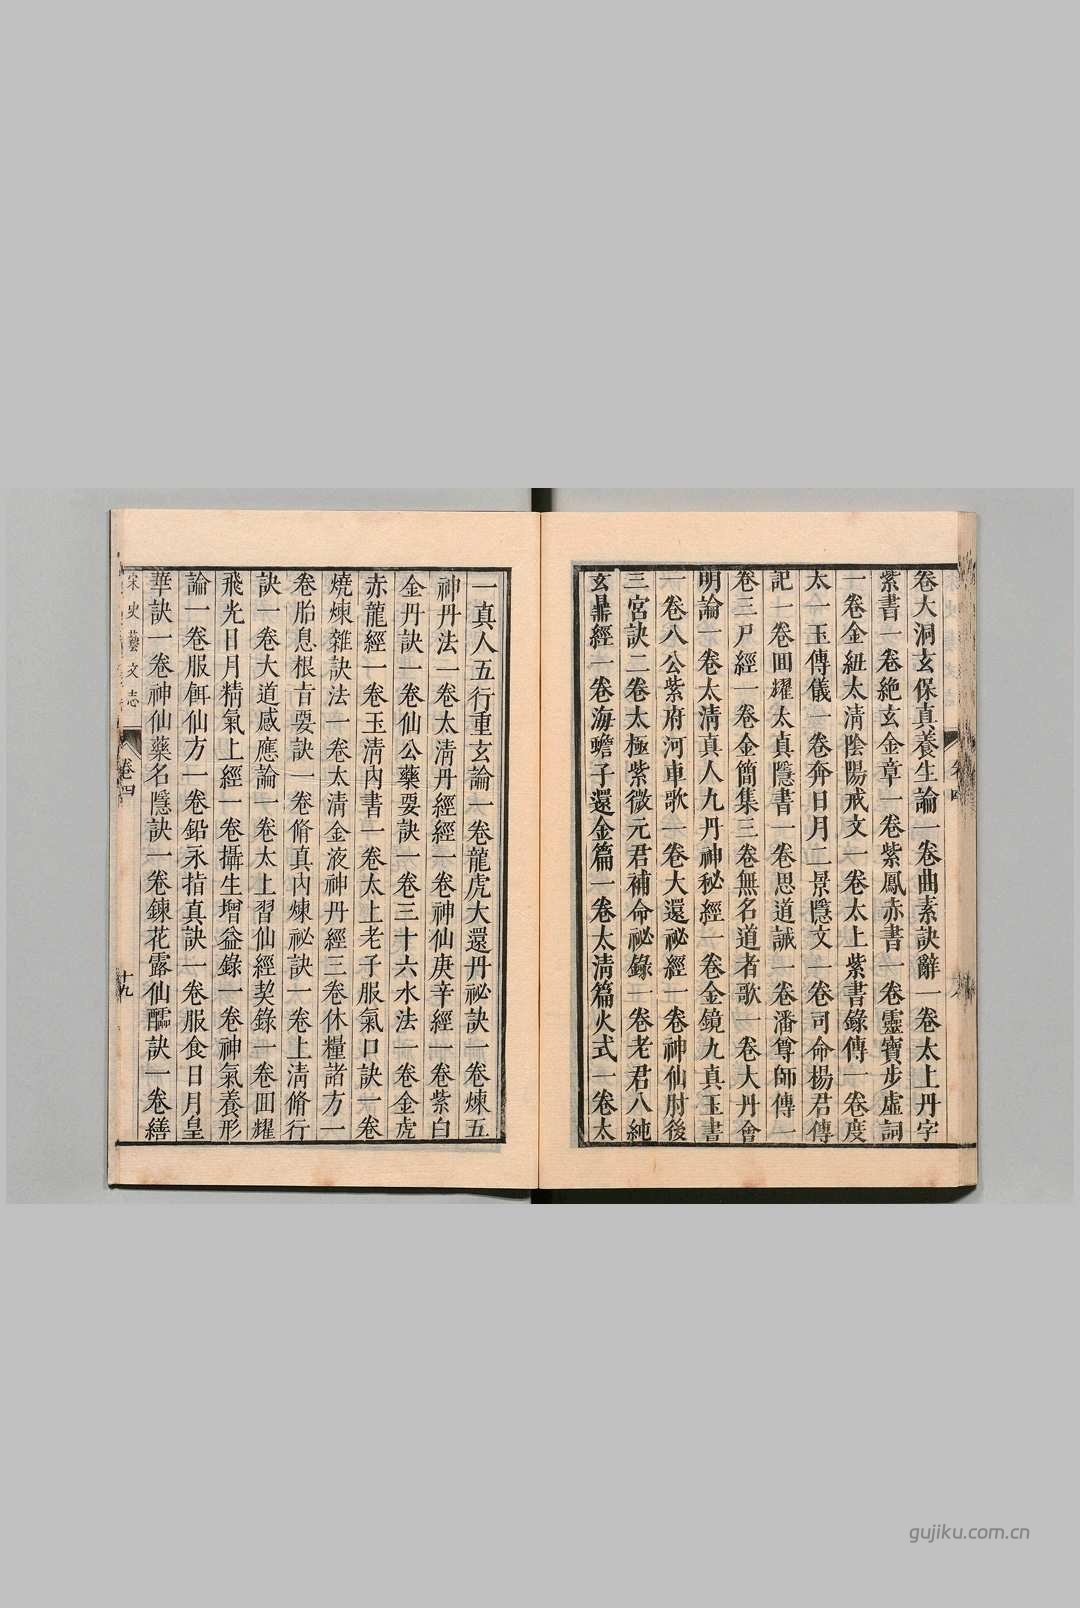 卷大洞玄保真養生論一卷曲素訣辭一卷太上丹字
紫書一卷絶玄金章一卷紫鳳赤書一卷靈寶步虛詞
一卷金紐太清陰陽戒文一卷太上紫書錄傳一卷度
太一玉傳儀一卷奔日月二景隱文一卷司命楊君傳
記一卷回耀太真隱書一卷思道誡一卷潘尊師傳一
卷三尸經一卷金簡集三卷無名道者歌一卷大丹會
明論一卷太清真人九丹神秘經一卷金鏡九真玉書
一卷八公紫府河車歌一卷大還祕經一卷神仙肘後
三宮訣二卷太極紫微元君補命祕錄一卷老君八純
玄鼎經一卷海蟾子還金篇一卷太清篇火式一卷太
一真人五行重玄論一卷龍虎大還丹祕訣一卷煉五
神丹法一卷太清丹經經一卷神仙庚辛經一卷紫白
金丹訣一卷仙公藥要訣一卷三十六水法一卷金虎
赤龍經一卷玉清內書一卷太上老子服氣口訣一卷
燒煉雜訣法一卷太清金液神丹經三卷休糧諸方一
卷胎息根旨要訣一卷脩真內煉祕訣一卷上清脩行
訣一卷大道感應論一卷太上習仙經契錄一卷回耀
飛光日月精氣上經一卷攝生增益錄一卷神氣養形
論一卷服餌仙方一卷鉛永指真訣一卷服食日月皇
華訣一卷神仙藥名隱訣一卷鍊花露仙醹訣一卷繕
宋史藝文志 卷四 十九
gujiku.com.cn